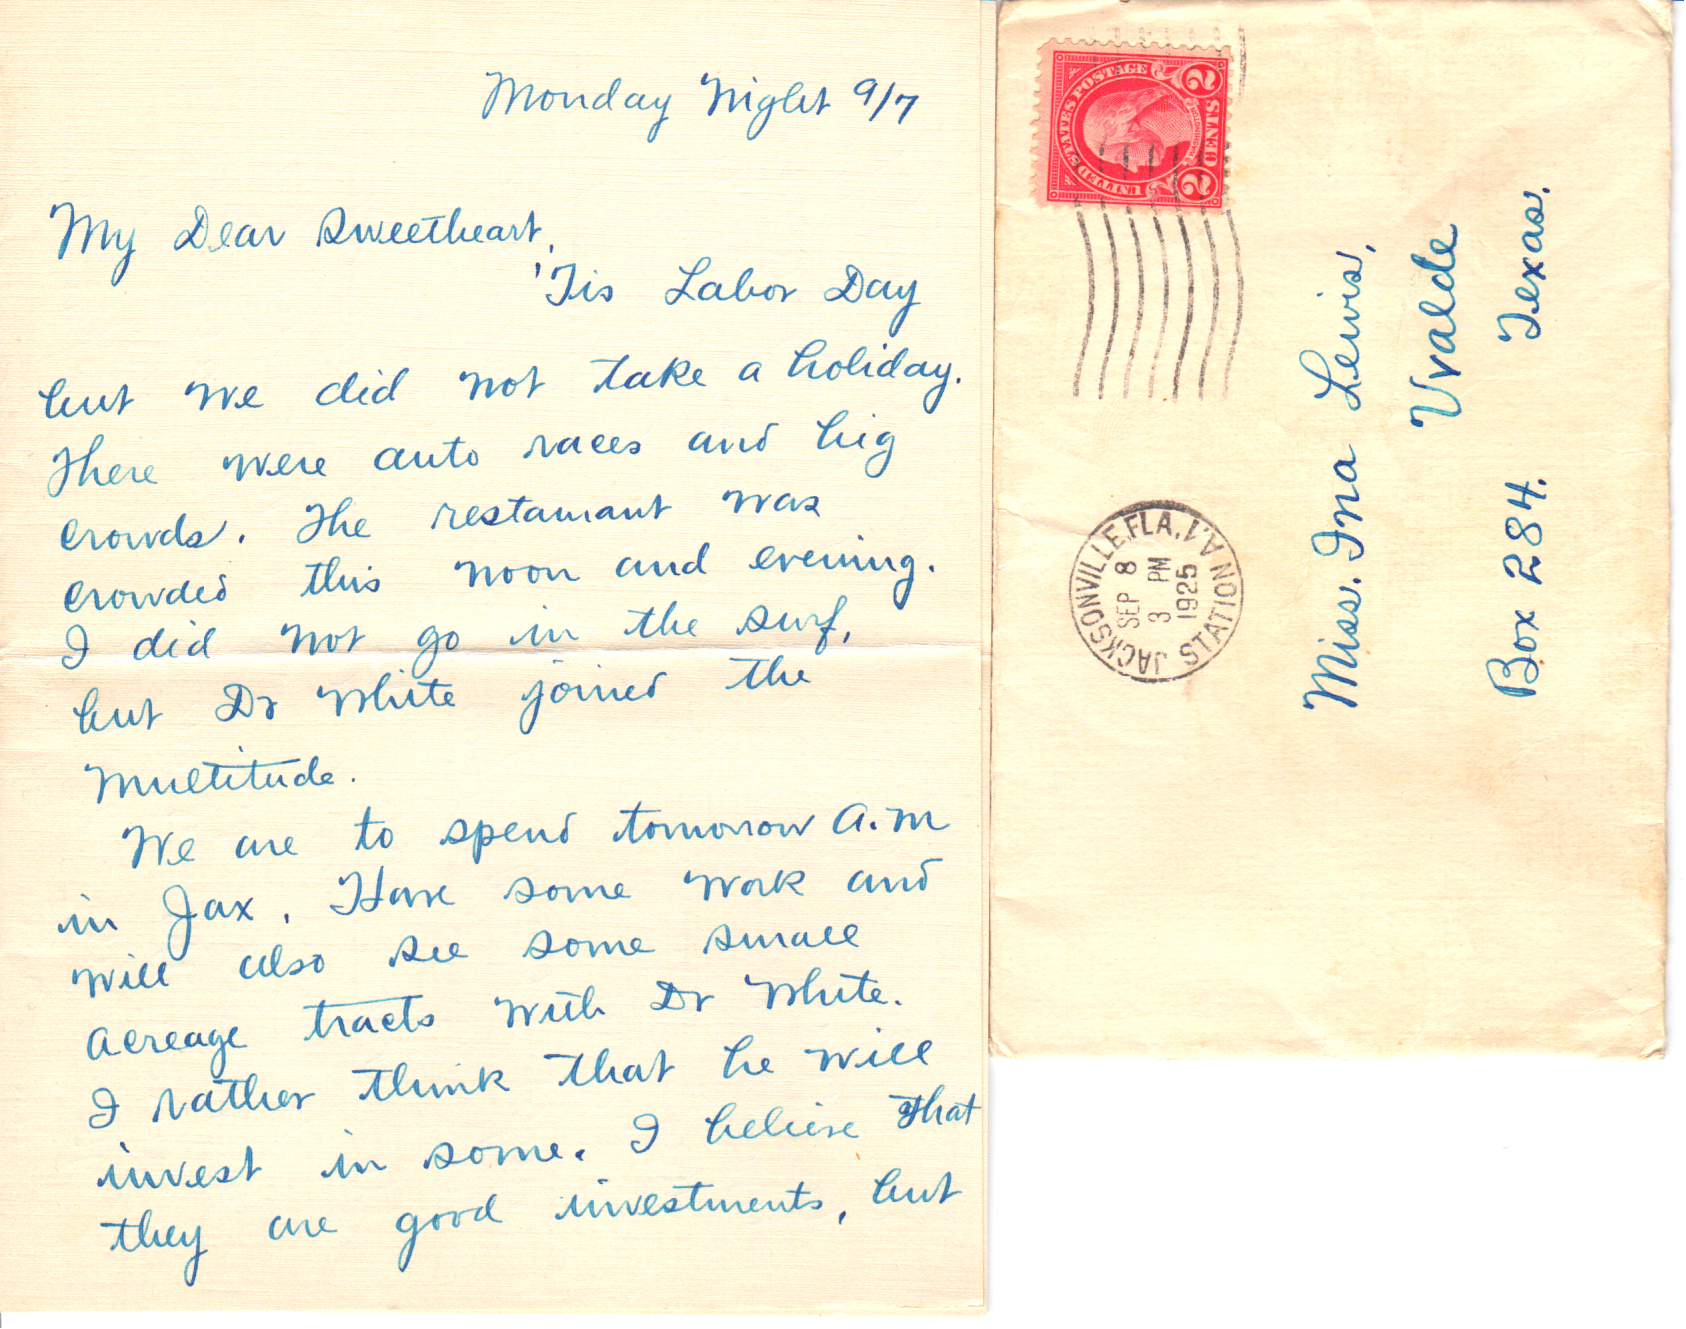 Monday Night 9/7
My Dear Sweetheart,
'Tis Labor Day
but we did not take a holiday.
There were auto races and big
crowds. The restaurant was
crowded this noon and evening.
I did not go in the surf,
but Dr White joined the
multitude.
We are to spend tomorrow A.M
in Jax. Have some work and
will also see some small
acreage tracts with Dr White.
I rather think that he will
invest in some. I believe that
they are good investments, but
UNITED STATES POSTAGE
2 CENTS 2
JACKSONVILLE, FLA.
STATION A.
SEP 8
3 PM
1925
Miss. Ina Lewis,
Uvalde
Box 284. Texas.